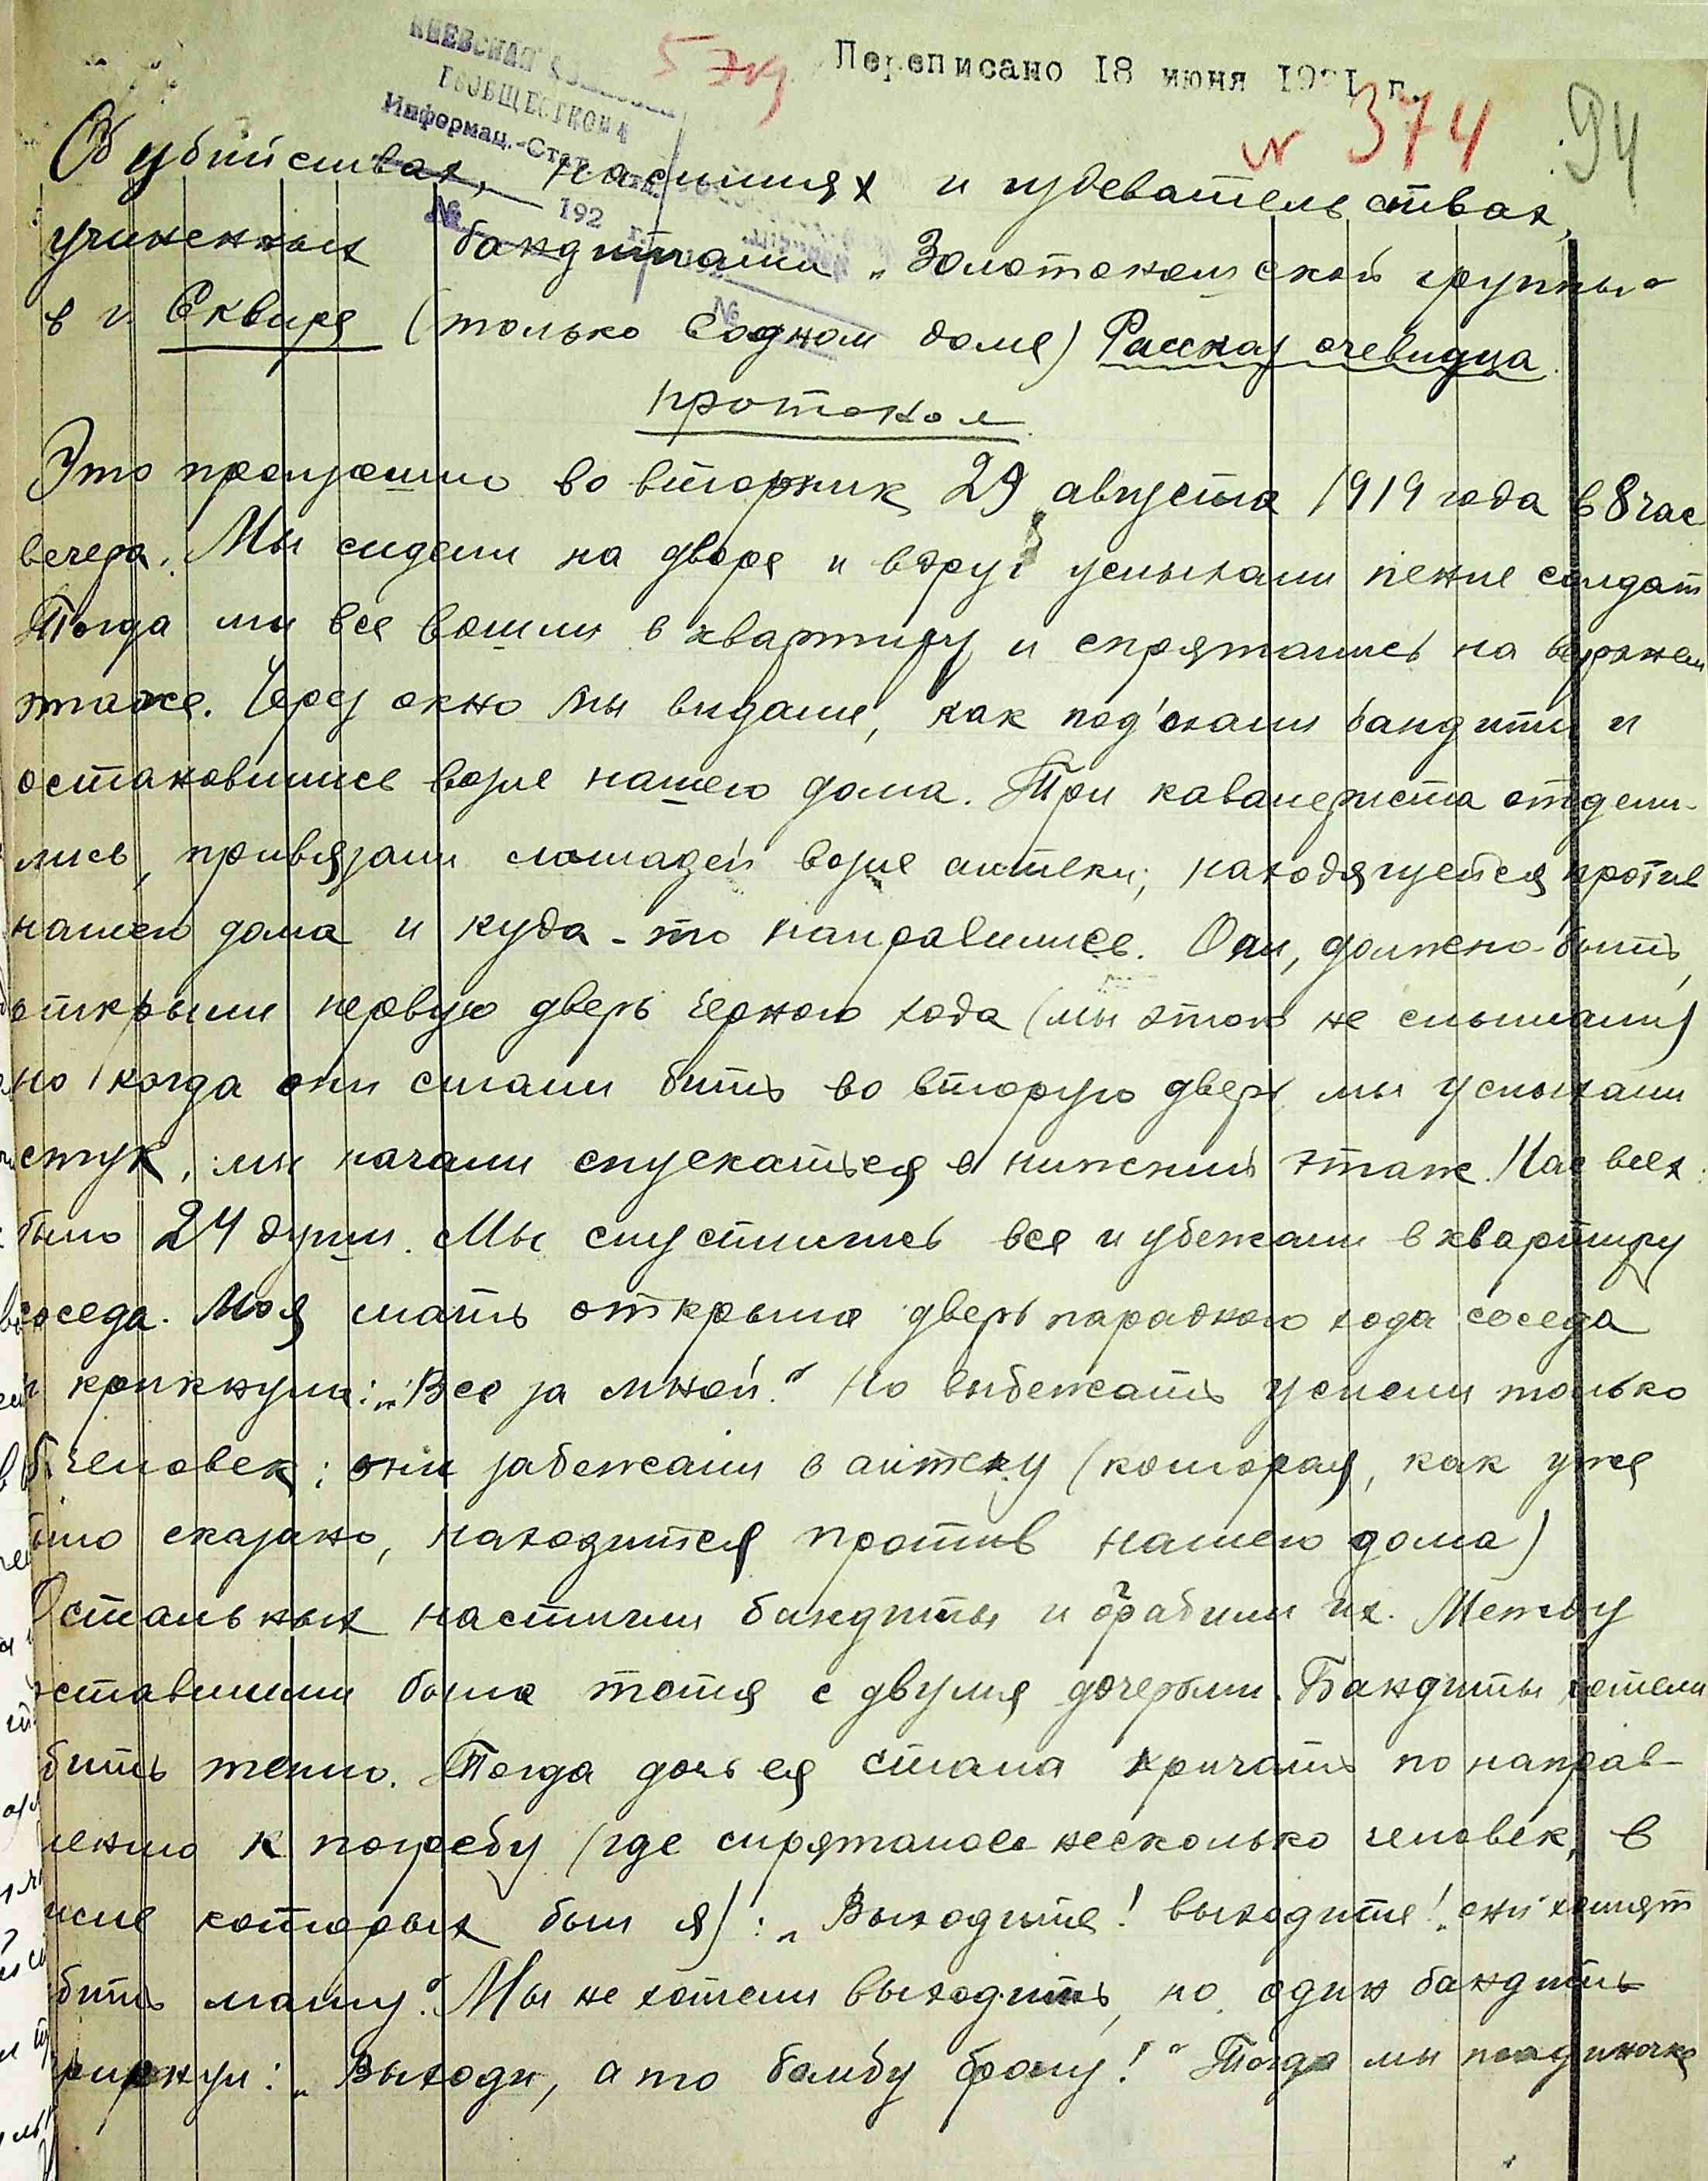 КИЕВСКАЯ
ГООБЩЕСТКОМ
Информац.-Стат.
№ 192 г.
№
Переписано 18 июня 1921 г.
№ 374
94
Об убийствах, насилиях и издевательствах,
учиненных бандитами „Золотоношской группы“
в г. Сквире (только в одном доме) Рассказ очевидца.
Протокол
Это произошло во вторник 29 августа 1919 года в 8 час
вечера. Мы сидели на дворе и вдруг услыхали пение солдат
Тогда мы все вошли в квартиру и спрятались на верхнем
этаже. Через окно мы видали, как под'ехали бандиты и
остановились возле нашего дома. Три кавалериста отдели-
лись, привязали лошадей возле аптеки, находящейся против
нашего дома и куда-то направились. Они, должно-быть,
открыли первую дверь черного хода (мы этого не слышали)
но когда они стали бить во вторую дверь мы услыхали
стук, мы начали спускаться в нижний этаж. Нас всех
было 24 души. Мы спустились все и убежали в квартиру
соседа. Моя мать открыла дверь парадного хода соседа
и крикнула: „Все за мной“. Но выбежать успели только
6 человек; они забежали в аптеку (которая, как уже
было сказано, находится против нашего дома)
Остальных настигли бандиты и ограбили их. Между
оставшими была тетя с двумя дочерьми. Бандиты хотели
бить тетю. Тогда дочь ея стала кричать по направ-
лению к погребу (где спряталось несколько человек, в
числе которых был я): „Выходите! выходите! они хотят
бить маму“. Мы не хотели выходить, но один бандит
крикнул: „Выходи, а то бомбу брошу!“ Тогда мы поодиночке